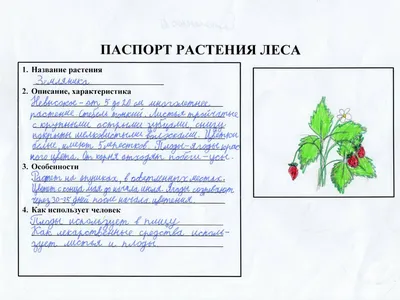 ПАСПОРТ РАСТЕНИЯ ЛЕСА
1. Название растения
Земляника
2. Описание, характеристика
Невысокое - от 5 до 20 см многолетнее
растение. Стебель тонкий. Листья тройчатые
с крупными острыми зубцами, снизу
покрыты шелковистыми волосками. Цветки
белые, имеют 5 лепестков. Плоды - ягоды крас
ного цвета. От корня отходят побеги - усы.
3. Особенности
Растёт на опушках, в осветлённых местах.
Цветёт с конца мая до начала июля. Ягоды созревают
через 30-25 дней после начала цветения.
4. Как использует человек
Плоды использует в пищу
Как лекарственные средства исполь-
зует листья и плоды.